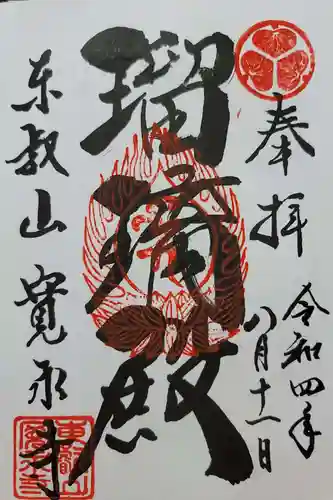 奉拝
令和四年
八月十一日
瑠璃殿
東叡山寛永寺